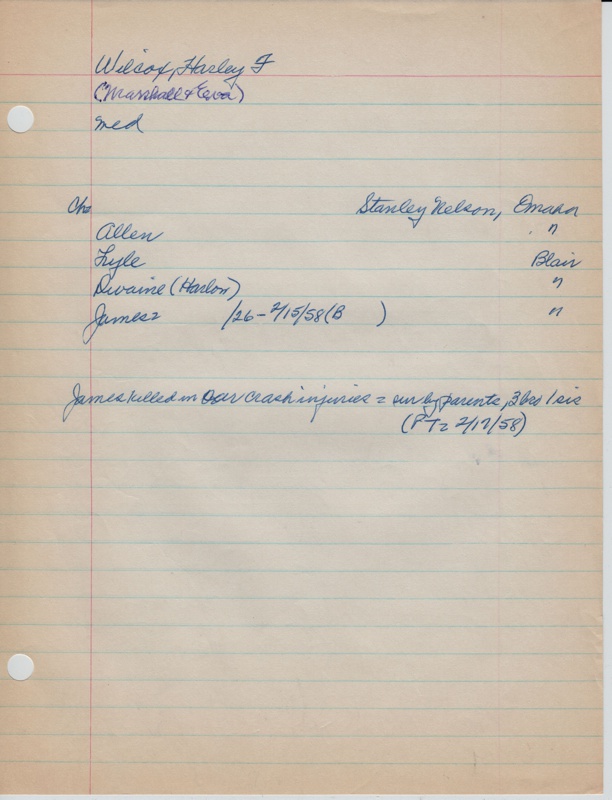 Wilcox, Harley F
(Marshall & Eva)
md
Ch= Stanley Nelson, Omaha
Allen "
Lyle Blair
Dwaine (Harlon) "
James= /26 - 2/15/58 (B ) "
James killed in car crash injuries = sur by parents, 3 bro 1 sis
(PT= 2/17/58)